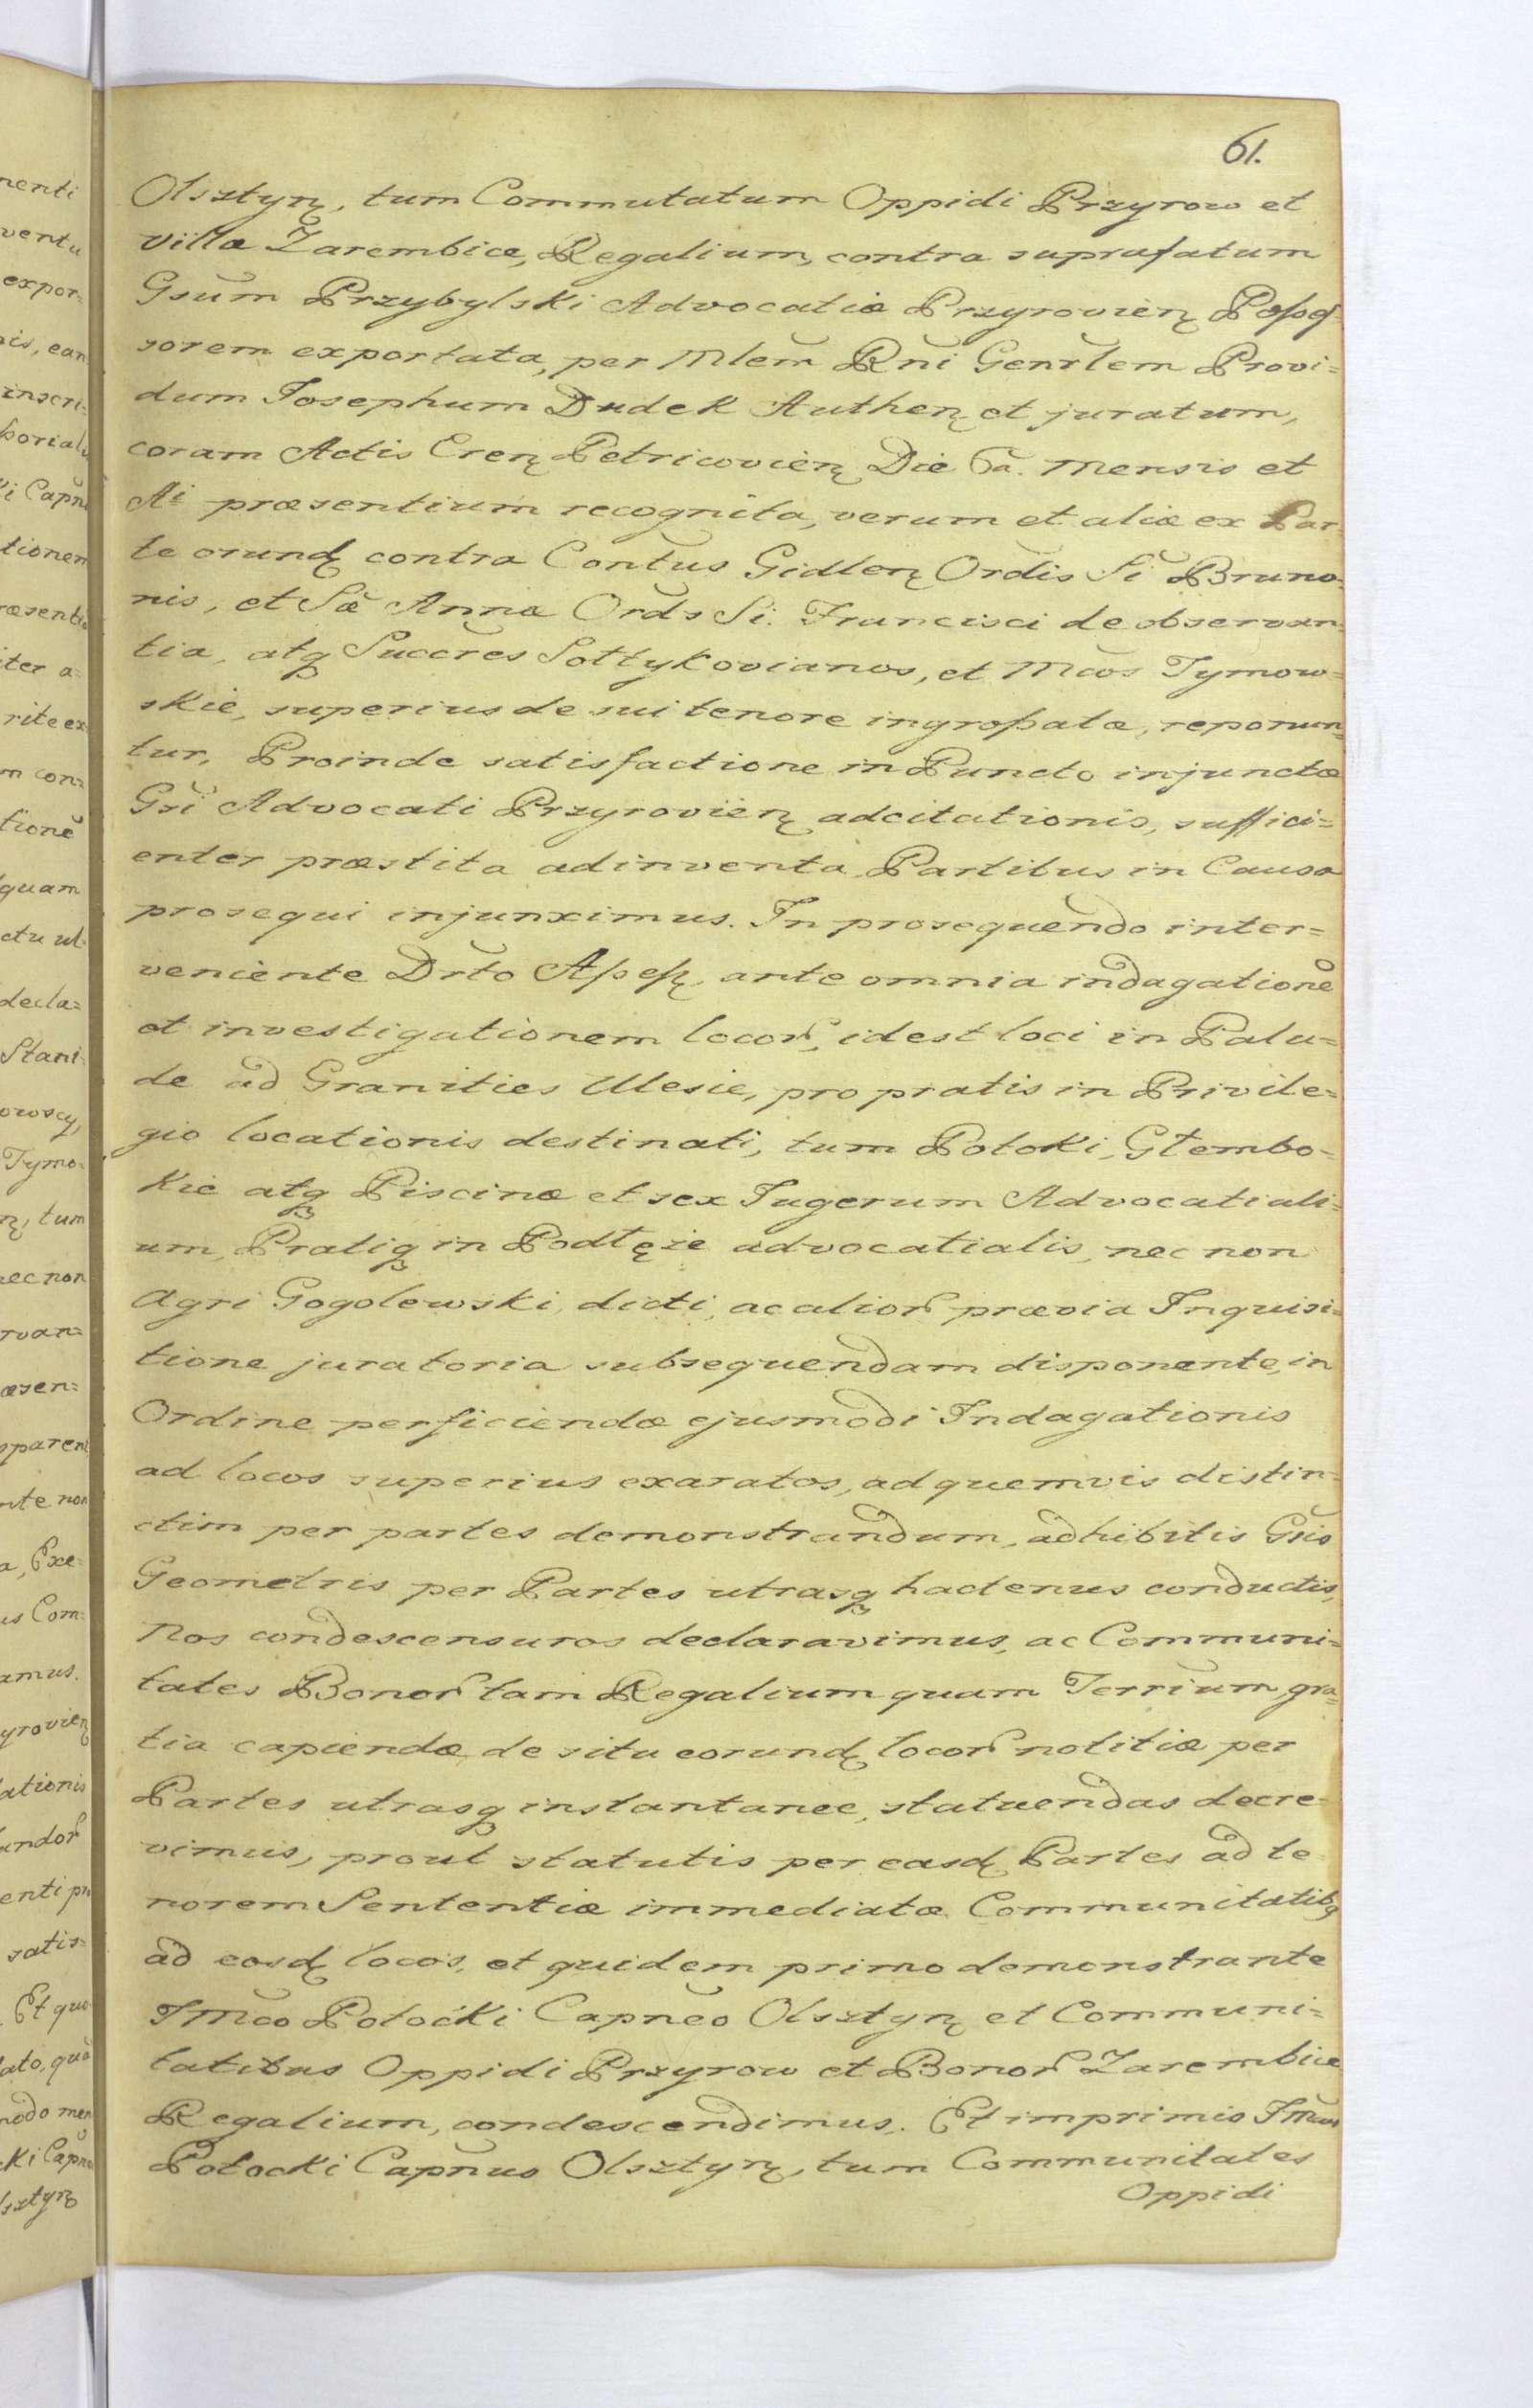 61.
Olsztyn, tum Commutatum Oppidi Przyrow et
villæ Zarembice, Regalium, contra suprafatum
Gsum Przybylski Advocatiæ Przyrovien Poßeß
sorem exportata, per Mlem Rni Genrlem Provi=
dum Josephum Dudek Authen et juratum,
coram Actis Cren Petricovien Die mensis et
Ai præsentium recognita, verum et aliæ ex Par=
te orund contra Contus Gidlen Ordis Si Bruno=
nis, et Sæ Annæ Ords Si. Francisci de observan=
tia, atq Succres Sołtykovianos, et Mcos Tymow=
skie, superius de sui tenore ingroßatæ, reponun=
tur, Proinde satisfactione in Puncto injunctæ
Gsi Advocati Przyrovien adcitationis, suffici=
enter præstita adinventa, Partibus in Causa
prosequi injunximus. In prosequendo inter=
veniente Drto Aßeß, ante omnia indagatione
et investigationem locor, idest loci in Palu=
de ad Granities Ulesie, pro pratis in Privile=
gio locationis destinati, tum Potoki, Głembo=
kie atq Piscinæ et sex Jugerum Advocatiali=
um, Pratiq in Podłęże advocatialis, nec non
Agri Gogolewski, dicti, ac alior prævia Inquisi=
tione juratoria subsequendam disponente, in
Ordine perficiendæ ejusmodi Indagationis
ad locos superius exaratos, ad quemvis distin=
ctim per partes demonstrandum, adhibitis Gsis
Geometris per Partes utrasq hactenus conductis,
Nos condescensuros declaravimus, ac Communi=
tates Bonor tam Regalium quam Terrium, gra=
tia capiendæ de situ eorund locor notitiæ per
Partes utrasq instantanee, statuendas decre=
vimus, prout statutis per easd Partes ad te
norem Sententiæ immediatæ Communitatibq
ad eosd locos, et quidem primo demonstrante
JMco Potocki Capneo Olsztyn et Communi=
tatibus Oppidi Przyrow et Bonor Zarembice
Regalium, condescendimus. Et imprimis JMcus
Potocki Capnus Olsztyn, tum Communitates
Oppidi